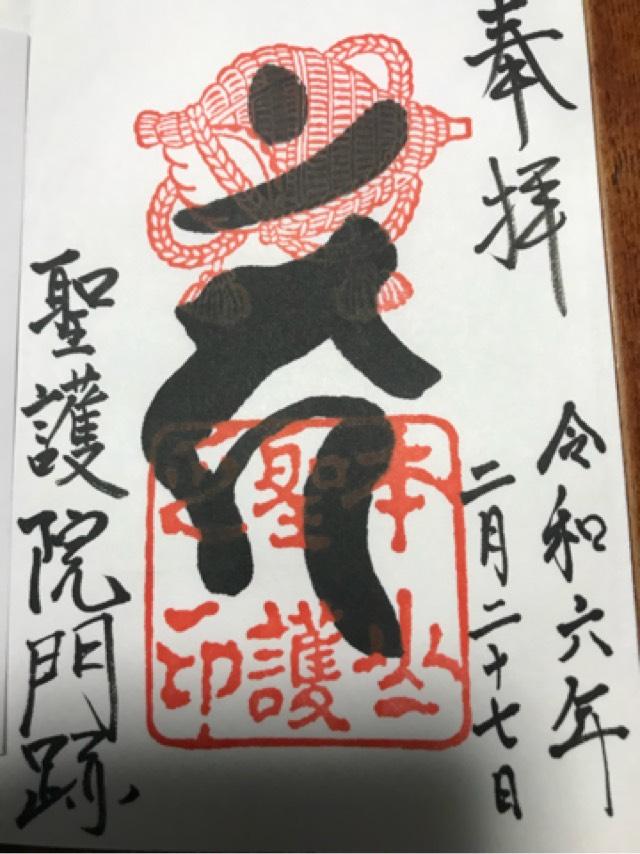 奉拝
令和六年
二月二十七日
本山
聖護
之印
聖護院門跡